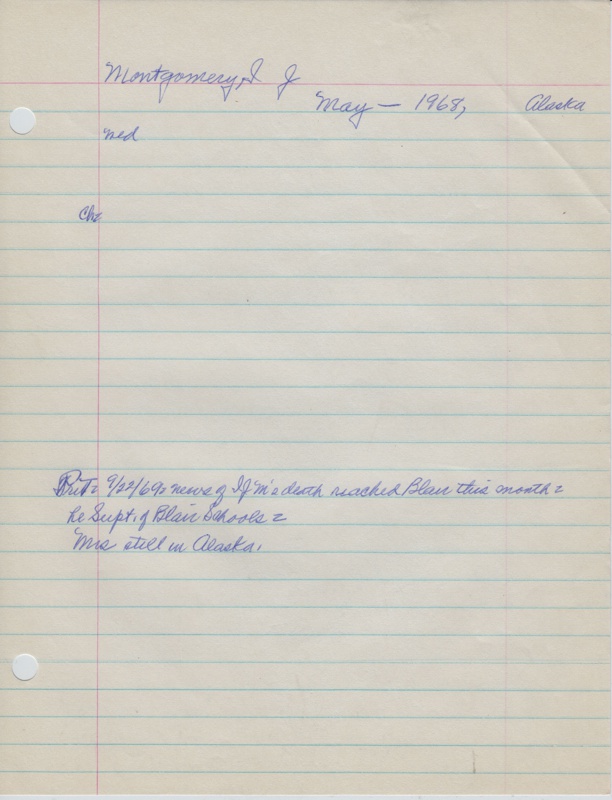 Montgomery, I J
May — 1968, Alaska
med
Che
9/22/69: news of I J M's death reached Blair this month =
he Supt. of Blair Schools =
Mrs still in Alaska.